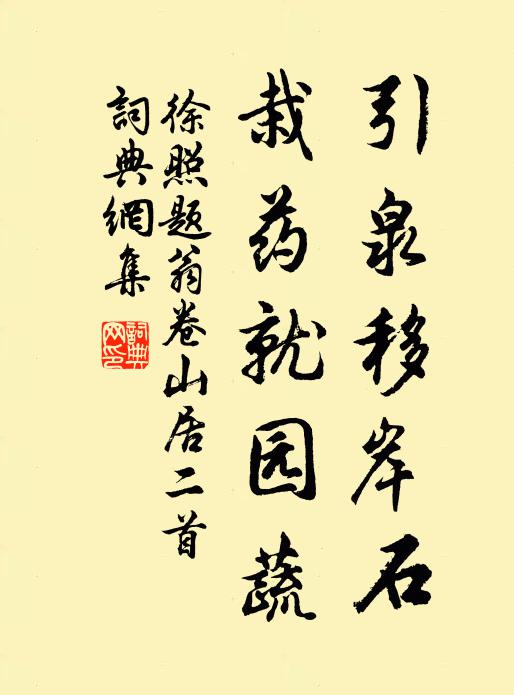 引泉移岸石
栽药就园蔬
徐照题翁卷山居二首
詞典網集
詞典网印